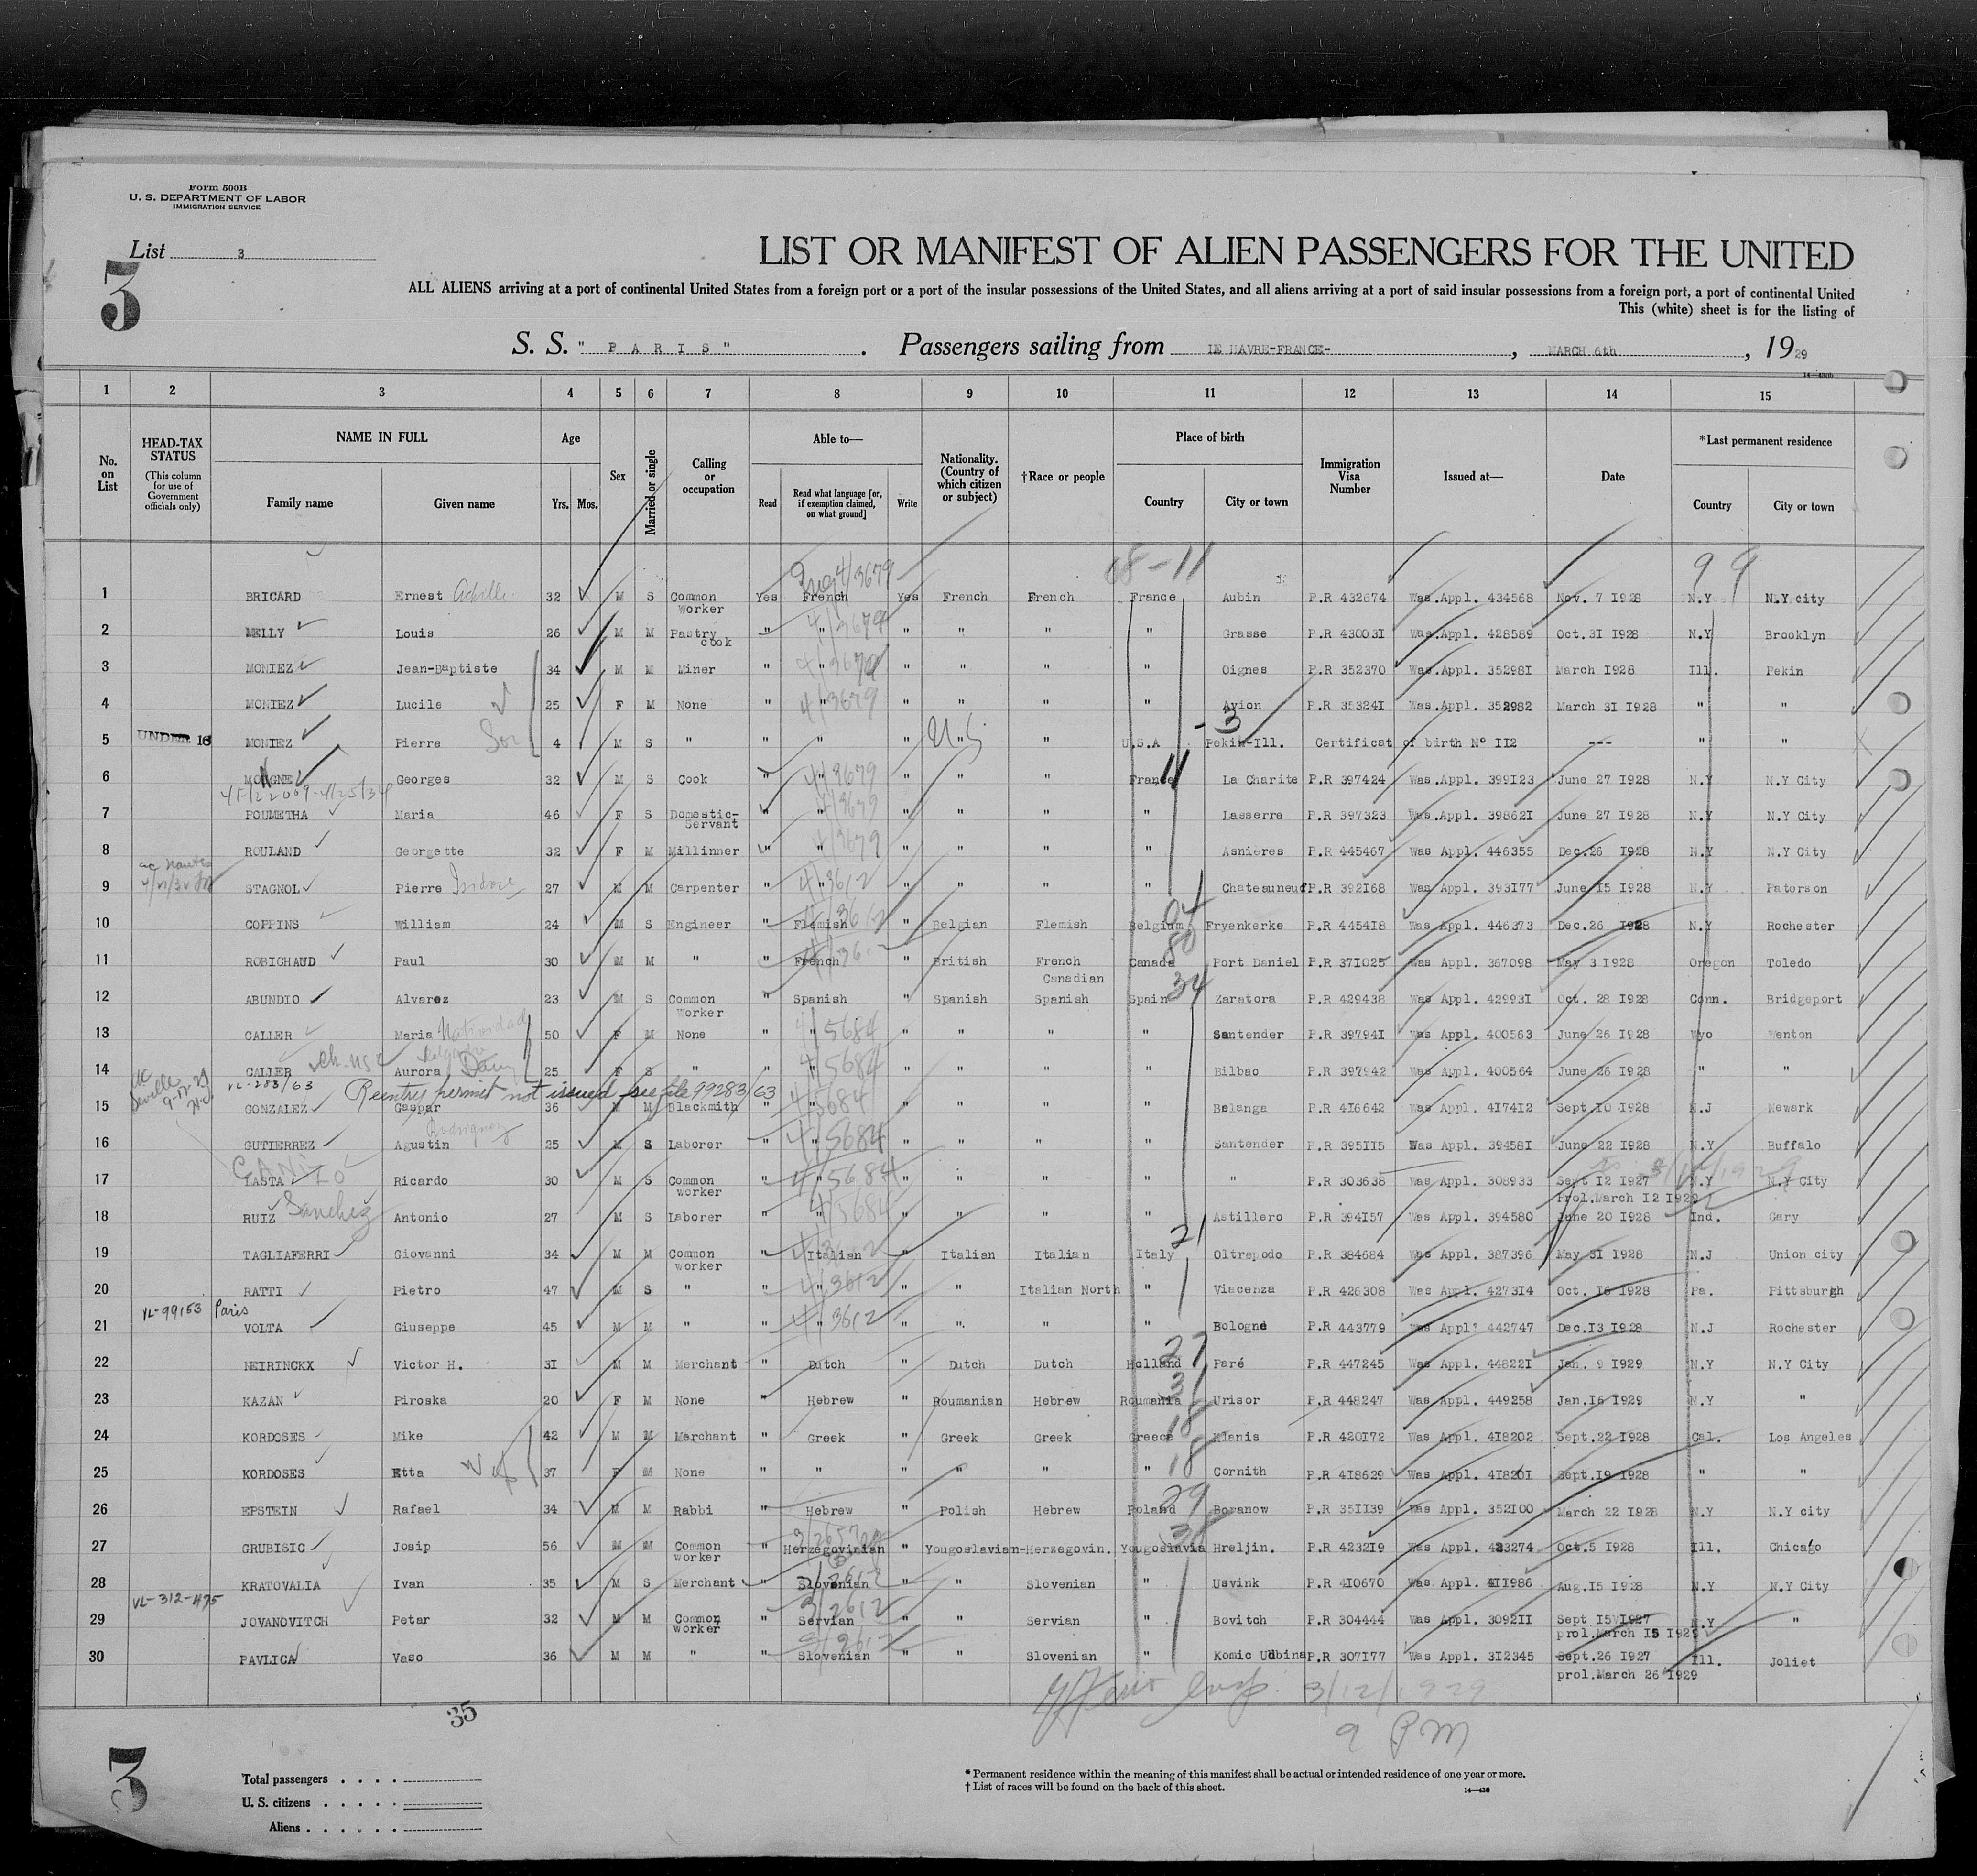 Form 500B
U. S. DEPARTMENT OF LABOR
IMMIGRATION SERVICE
List 3
3
LIST OR MANIFEST OF ALIEN PASSENGERS FOR THE UNITED
ALL ALIENS arriving at a port of continental United States from a foreign port or a port of the insular possessions of the United States, and all aliens arriving at a port of said insular possessions from a foreign port, a port of continental United
This (white) sheet is for the listing of
S. S. " P A R I S " . Passengers sailing from LE HAVRE-FRANCE- , MARCH 6th , 1929
1 2 3 4 5 6 7 8 9 10 11 12 13 14 15
No. on List
HEAD-TAX STATUS (This column for use of Government officials only)
NAME IN FULL Family name Given name
Age Yrs. Mos.
Sex
Married or single
Calling or occupation
Able to— Read Read what language [or, if exemption claimed, on what ground] Write
Nationality. (Country of which citizen or subject)
†Race or people
Place of birth Country City or town
Immigration Visa Number
Issued at—
Date
*Last permanent residence Country City or town
08-11 99
1 BRICARD Ernest Achille 32 M S Common worker Yes French Yes French French France Aubin P.R 432674 Was.Appl. 434568 Nov. 7 1928 N.Y N.Y city
2 MELLY Louis 26 M M Pastry cook " " 4/3679 " " " " Grasse P.R 430031 Was.Appl. 428589 Oct.31 1928 N.Y Brooklyn
3 MONIEZ Jean-Baptiste 34 M M Miner " " 4/3679 " " " " Oignes P.R 352370 Was.Appl. 352981 March 1928 Ill. Pekin
4 MONIEZ Lucile 25 F M None " " 4/3679 " " " " Avion P.R 353241 Was.Appl. 352982 March 31 1928 " "
5 UNDER 16 MONIEZ Pierre Son 4 M S " " " " " US " U.S.A -3 Pekin-Ill. Certificat of birth Nº 112 --- " "
6 MOUGNE Georges 32 M S Cook " " 4/3679 " " " France 11 La Charite P.R 397424 Was.Appl. 399123 June 27 1928 N.Y N.Y City
7 POUMETHA Maria 46 F S Domestic-Servant " " 4/3679 " " " " Lasserre P.R 397323 Was.Appl. 398621 June 27 1928 N.Y N.Y City
8 ROULAND Georgette 32 F M Millinner " " 4/3679 " " " " Asnieres P.R 445467 Was Appl. 446355 Dec.26 1928 N.Y N.Y City
9 STAGNOL Pierre Isidore 27 M M Carpenter " " 4/3612 " " " " Chateauneuf P.R 392168 Was Appl. 393177 June 15 1928 N.Y Paterson
10 COPPINS William 24 M S Engineer " Flemish " Belgian Flemish Belgium 04 Fryenkerke P.R 445418 Was Appl. 446373 Dec.26 1928 N.Y Rochester
11 ROBICHAUD Paul 30 M M " " French " British French Canadian Canada 80 Port Daniel P.R 371025 Was Appl. 367098 May 3 1928 Oregon Toledo
12 ABUNDIO Alvarez 23 M S Common worker " Spanish " Spanish Spanish Spain 34 Zaratora P.R 429438 Was Appl. 429931 Oct. 28 1928 Conn. Bridgeport
13 CALLER Maria Natividad 50 F M None " " 4/5684 " " " " Santender P.R 397941 Was Appl. 400563 June 26 1928 Wyo Wenton
14 CALLER Aurora 25 F S " " " 4/5684 " " " " Bilbao P.R 397942 Was Appl. 400564 June 26 1928 " "
VL-283/63 Reentry permit not issued see file 99283/63
15 GONZALEZ Gaspar 36 M M Blackmith " " 4/5684 " " " " Belanga P.R 416642 Was Appl. 417412 Sept.10 1928 N.J Newark
16 GUTIERREZ Agustin Rodriguez 25 M S Laborer " " 4/5684 " " " " Santender P.R 395115 Was Appl. 394581 June 22 1928 N.Y Buffalo
17 LASTA Ricardo 30 M S Common worker " " 4/5684 " " " " " P.R 303638 Was Appl. 308933 Sept 12 1927 Prol.March 12 1929 N.Y N.Y City
18 RUIZ Sanchez Antonio 27 M S Laborer " " 4/5684 " " " " Astillero P.R 394157 Was Appl. 394580 June 20 1928 Ind. Gary
19 TAGLIAFERRI Giovanni 34 M M Common worker " Italian " Italian Italian Italy 21 Oltrepodo P.R 384684 Was Appl. 387396 May 31 1928 N.J Union city
20 RATTI Pietro 47 M S " " " 4/3612 " " Italian North " Viacenza P.R 426308 Was Appl. 427314 Oct. 16 1928 Pa. Pittsburgh
VL-99153 Paris
21 VOLTA Giuseppe 45 M M " " " 4/3612 " " " " Bologne P.R 443779 Was Appl. 442747 Dec.13 1928 N.J Rochester
22 NEIRINCKX Victor H. 31 M M Merchant " Dutch " Dutch Dutch Holland 27 Paré P.R 447245 Was Appl. 448221 Jan. 9 1929 N.Y N.Y City
23 KAZAN Piroska 20 F M None " Hebrew " Roumanian Hebrew Roumania 31 Urisor P.R 448247 Was Appl. 449258 Jan.16 1929 N.Y "
24 KORDOSES Mike 42 M M Merchant " Greek " Greek Greek Greece 18 Klanis P.R 420172 Was Appl. 418202 Sept.22 1928 Cal. Los Angeles
25 KORDOSES Etta Wif 37 F M None " " " " " " 18 Cornith P.R 418629 Was Appl. 418201 Sept.19 1928 " "
26 EPSTEIN Rafael 34 M M Rabbi " Hebrew " Polish Hebrew Poland 29 Boranow P.R 351139 Was Appl. 352100 March 22 1928 N.Y N.Y city
27 GRUBISIC Josip 56 M M Common worker " Herzegovinian " Yougoslavian-Herzegovin. Yougoslavia Hreljin. P.R 423219 Was Appl. 423274 Oct.5 1928 Ill. Chicago
28 KRATOVALIA Ivan 35 M S Merchant " Slovenian " " Slovenian " Usvink P.R 410670 Was Appl. 411986 Aug.15 1928 N.Y N.Y City
VL-312-475
29 JOVANOVITCH Petar 32 M M Common worker " Servian 3/2612 " " Servian " Bovitch P.R 304444 Was Appl. 309211 Sept 15 1927 prol.March 15 1929 N.Y "
30 PAVLICA Vaso 36 M M " " Slovenian 3/2612 " " Slovenian " Komic Udbina P.R 307177 Was Appl. 312345 Sept.26 1927 prol.March 26 1929 Ill. Joliet
Insp. 3/12/1929
9 PM
35
3
Total passengers . . . .
U. S. citizens . . . . .
Aliens . . . . . .
* Permanent residence within the meaning of this manifest shall be actual or intended residence of one year or more.
† List of races will be found on the back of this sheet.
14—430